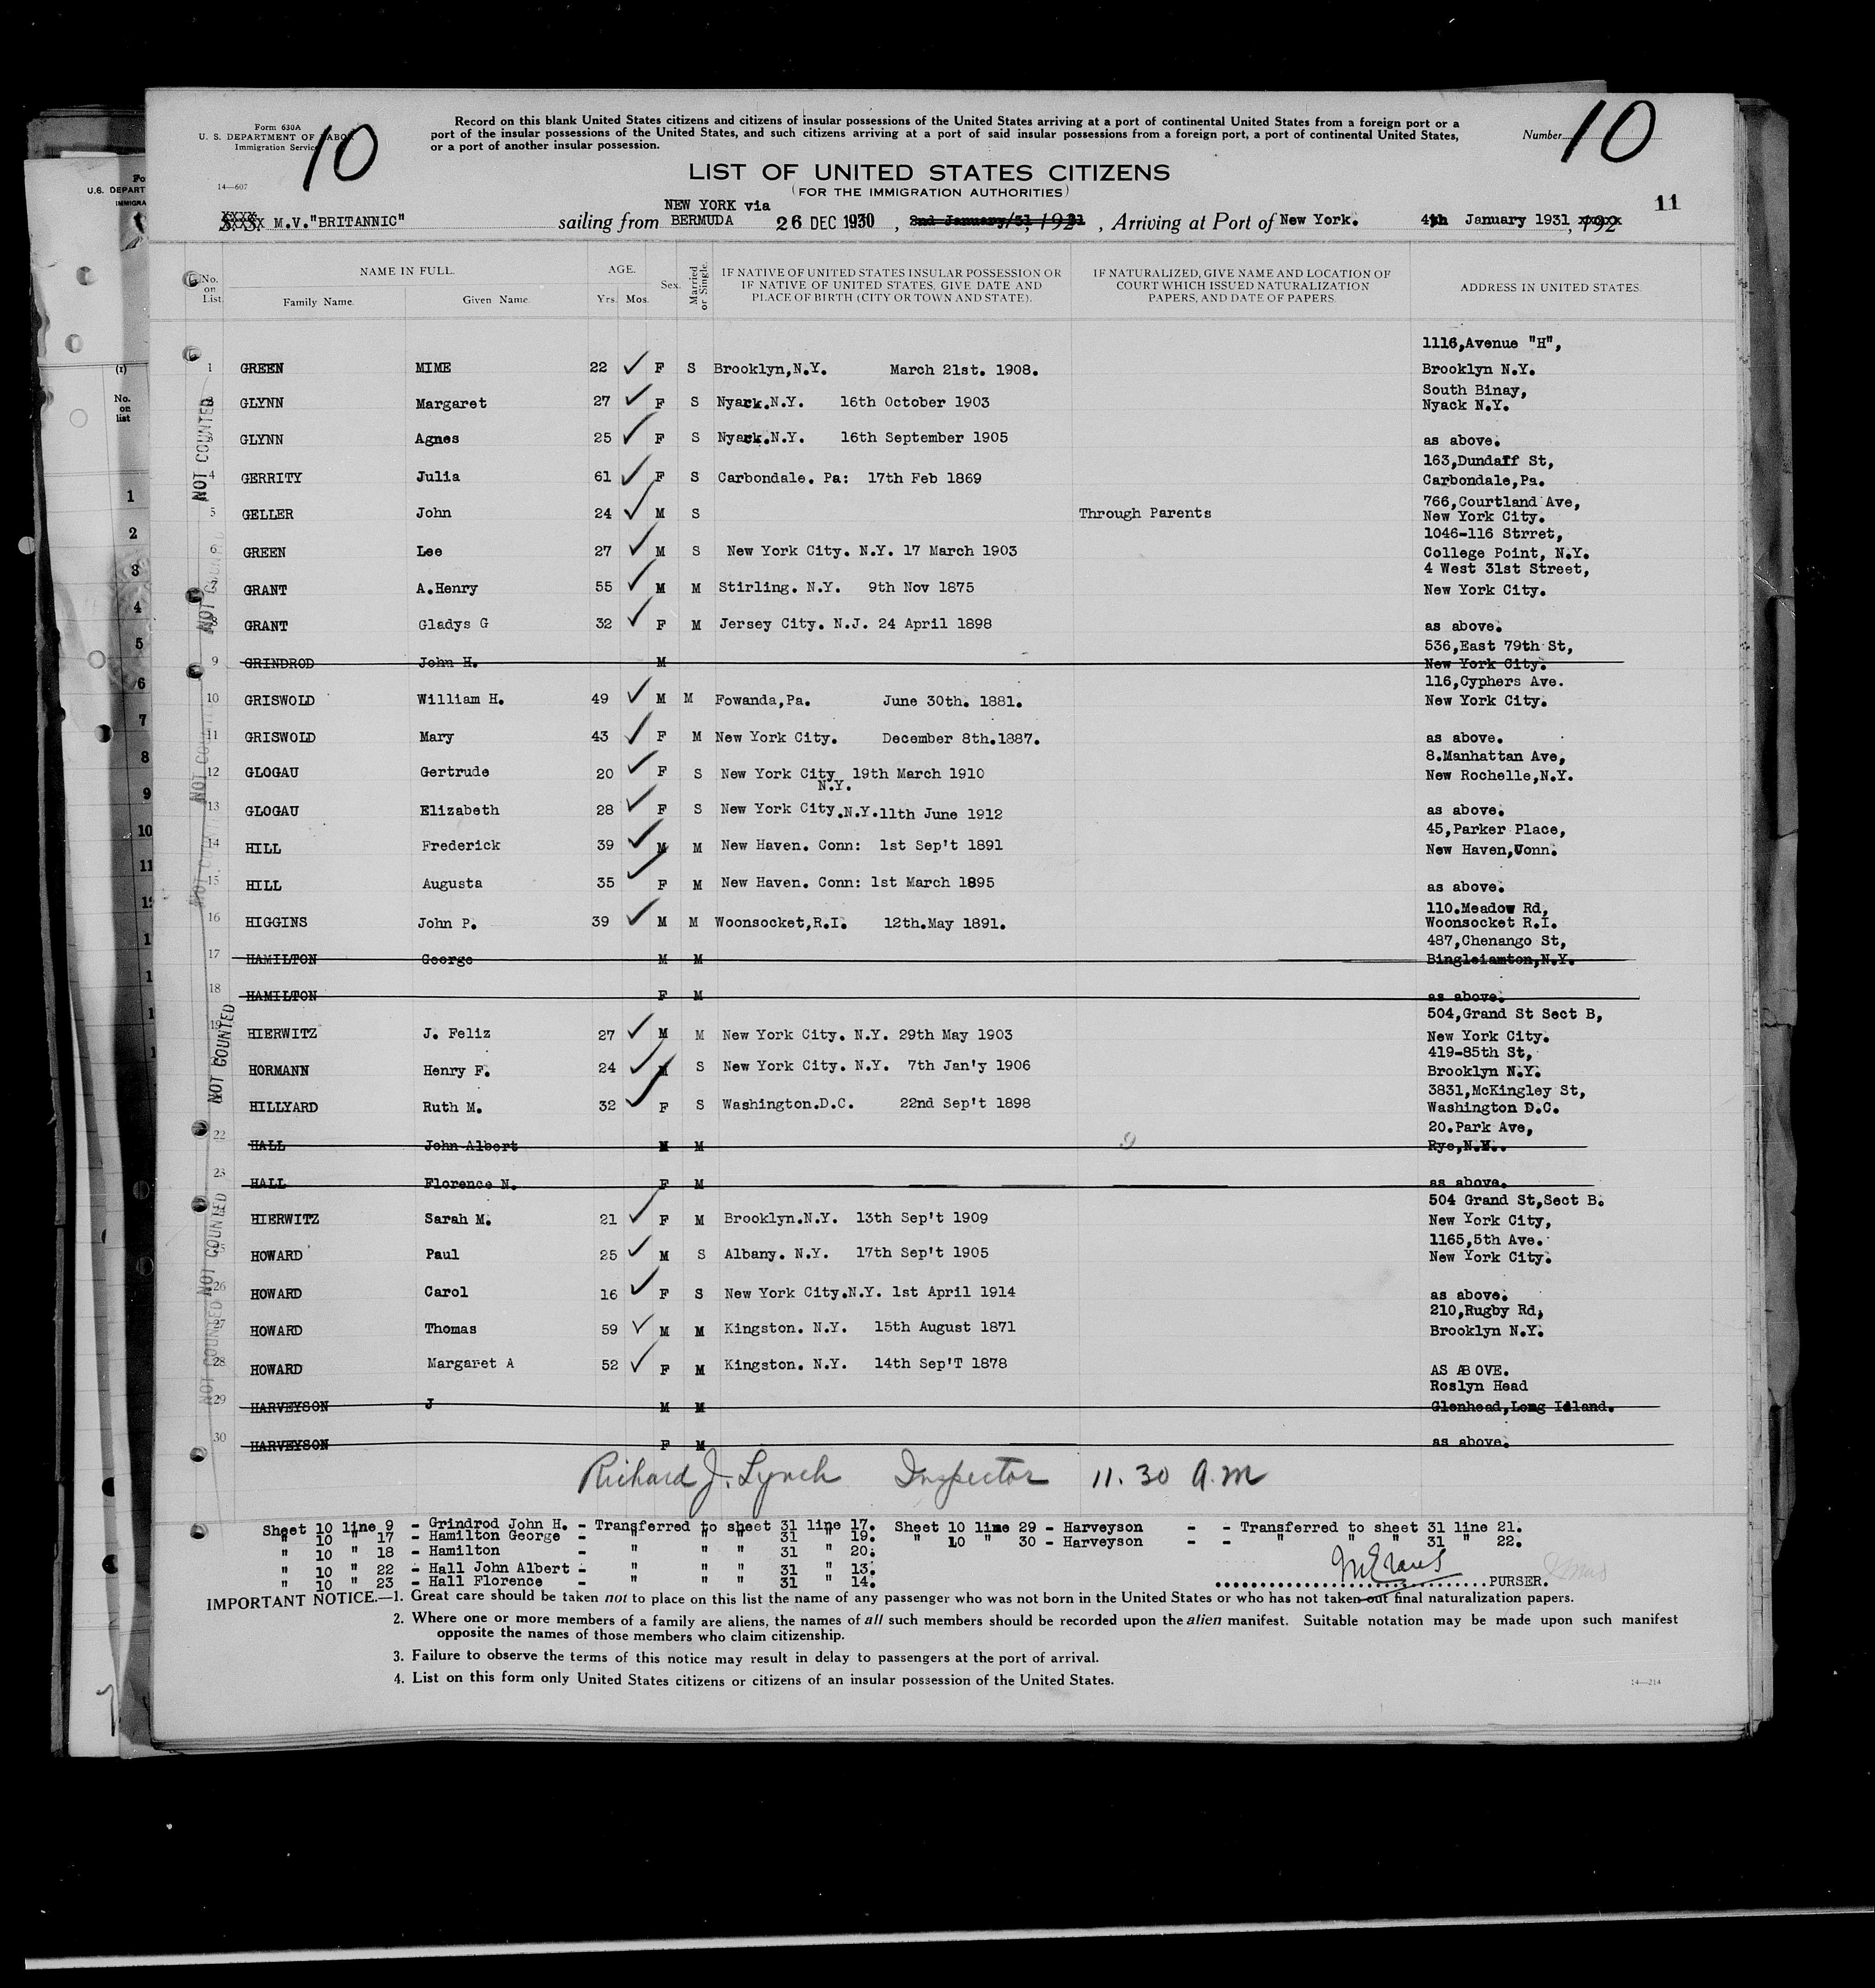 Form 630A
U. S. DEPARTMENT OF LABOR
Immigration Service
10
Record on this blank United States citizens and citizens of insular possessions of the United States arriving at a port of continental United States from a foreign port or a
port of the insular possessions of the United States, and such citizens arriving at a port of said insular possessions from a foreign port, a port of continental United States,
or a port of another insular possession.
Number 10
14—607
LIST OF UNITED STATES CITIZENS
(FOR THE IMMIGRATION AUTHORITIES)
11
M.V."BRITANNIC" sailing from NEW YORK via BERMUDA 26 DEC 1930, 2nd January/31, 1921, Arriving at Port of New York. 4th January 1931, 192
No. on List. NAME IN FULL. Family Name. Given Name. AGE. Yrs. Mos. Sex. Married or Single. IF NATIVE OF UNITED STATES INSULAR POSSESSION OR IF NATIVE OF UNITED STATES, GIVE DATE AND PLACE OF BIRTH (CITY OR TOWN AND STATE). IF NATURALIZED, GIVE NAME AND LOCATION OF COURT WHICH ISSUED NATURALIZATION PAPERS, AND DATE OF PAPERS. ADDRESS IN UNITED STATES.
1 GREEN MIME 22 F S Brooklyn,N.Y. March 21st. 1908. 1116,Avenue "H", Brooklyn N.Y.
GLYNN Margaret 27 F S Nyack.N.Y. 16th October 1903 South Binay, Nyack N.Y.
GLYNN Agnes 25 F S Nyack.N.Y. 16th September 1905 as above.
4 GERRITY Julia 61 F S Carbondale. Pa: 17th Feb 1869 163,Dundaff St, Carbondale,Pa.
5 GELLER John 24 M S Through Parents 766,Courtland Ave, New York City.
6 GREEN Lee 27 M S New York City. N.Y. 17 March 1903 1046-116 Strret, College Point, N.Y.
7 GRANT A.Henry 55 M M Stirling. N.Y. 9th Nov 1875 4 West 31st Street, New York City.
8 GRANT Gladys G 32 F M Jersey City. N.J. 24 April 1898 as above.
9 GRINDROD John H. M 536,East 79th St, New York City.
10 GRISWOLD William H. 49 M M Fowanda,Pa. June 30th. 1881. 116,Cyphers Ave. New York City.
11 GRISWOLD Mary 43 F M New York City. December 8th.1887. as above.
12 GLOGAU Gertrude 20 F S New York City N.Y. 19th March 1910 8.Manhattan Ave, New Rochelle,N.Y.
13 GLOGAU Elizabeth 28 F S New York City.N.Y.11th June 1912 as above.
14 HILL Frederick 39 M M New Haven. Conn: 1st Sep't 1891 45,Parker Place, New Haven,Conn.
15 HILL Augusta 35 F M New Haven. Conn: 1st March 1895 as above.
16 HIGGINS John P. 39 M M Woonsocket,R.I. 12th.May 1891. 110.Meadow Rd, Woonsocket R.I.
17 HAMILTON George M M 487,Chenango St, Bingleiamton,N.Y.
18 HAMILTON F M as above.
19 HIERWITZ J. Feliz 27 M M New York City. N.Y. 29th May 1903 504,Grand St Sect B, New York City.
HORMANN Henry F. 24 M S New York City. N.Y. 7th Jan'y 1906 419-85th St, Brooklyn N.Y.
HILLYARD Ruth M. 32 F S Washington.D.C. 22nd Sep't 1898 3831,McKingley St, Washington D.C.
22 HALL John Albert M M 20.Park Ave, Rye,N.Y..
23 HALL Florence N. F M as above.
HIERWITZ Sarah M. 21 F M Brooklyn.N.Y. 13th Sep't 1909 504 Grand St,Sect B. New York City,
25 HOWARD Paul 25 M S Albany. N.Y. 17th Sep't 1905 1165,5th Ave. New York City.
26 HOWARD Carol 16 F S New York City.N.Y. 1st April 1914 as above.
27 HOWARD Thomas 59 M M Kingston. N.Y. 15th August 1871 210,Rugby Rd, Brooklyn N.Y.
28 HOWARD Margaret A 52 F M Kingston. N.Y. 14th Sep'T 1878 AS ABOVE.
29 HARVEYSON J M M Roslyn Head Glenhead,Long Island.
30 HARVEYSON F M as above.
NOT COUNTED
NOT COUNTED
NOT COUNTED
NOT COUNTED
NOT COUNTED
NOT COUNTED
NOT COUNTED
Richard J. Lynch Inspector 11.30 A.M
Sheet 10 line 9 - Grindrod John H. - Transferred to sheet 31 line 17. Sheet 10 line 29 - Harveyson - - Transferred to sheet 31 line 21.
" 10 " 17 - Hamilton George - " " " 31 " 19. " 10 " 30 - Harveyson - - " " " 31 " 22.
" 10 " 18 - Hamilton - " " " 31 " 20.
" 10 " 22 - Hall John Albert - " " " 31 " 13.
" 10 " 23 - Hall Florence - " " " 31 " 14.
PURSER.
IMPORTANT NOTICE.—1. Great care should be taken not to place on this list the name of any passenger who was not born in the United States or who has not taken out final naturalization papers.
2. Where one or more members of a family are aliens, the names of all such members should be recorded upon the alien manifest. Suitable notation may be made upon such manifest
opposite the names of those members who claim citizenship.
3. Failure to observe the terms of this notice may result in delay to passengers at the port of arrival.
4. List on this form only United States citizens or citizens of an insular possession of the United States.
14—214